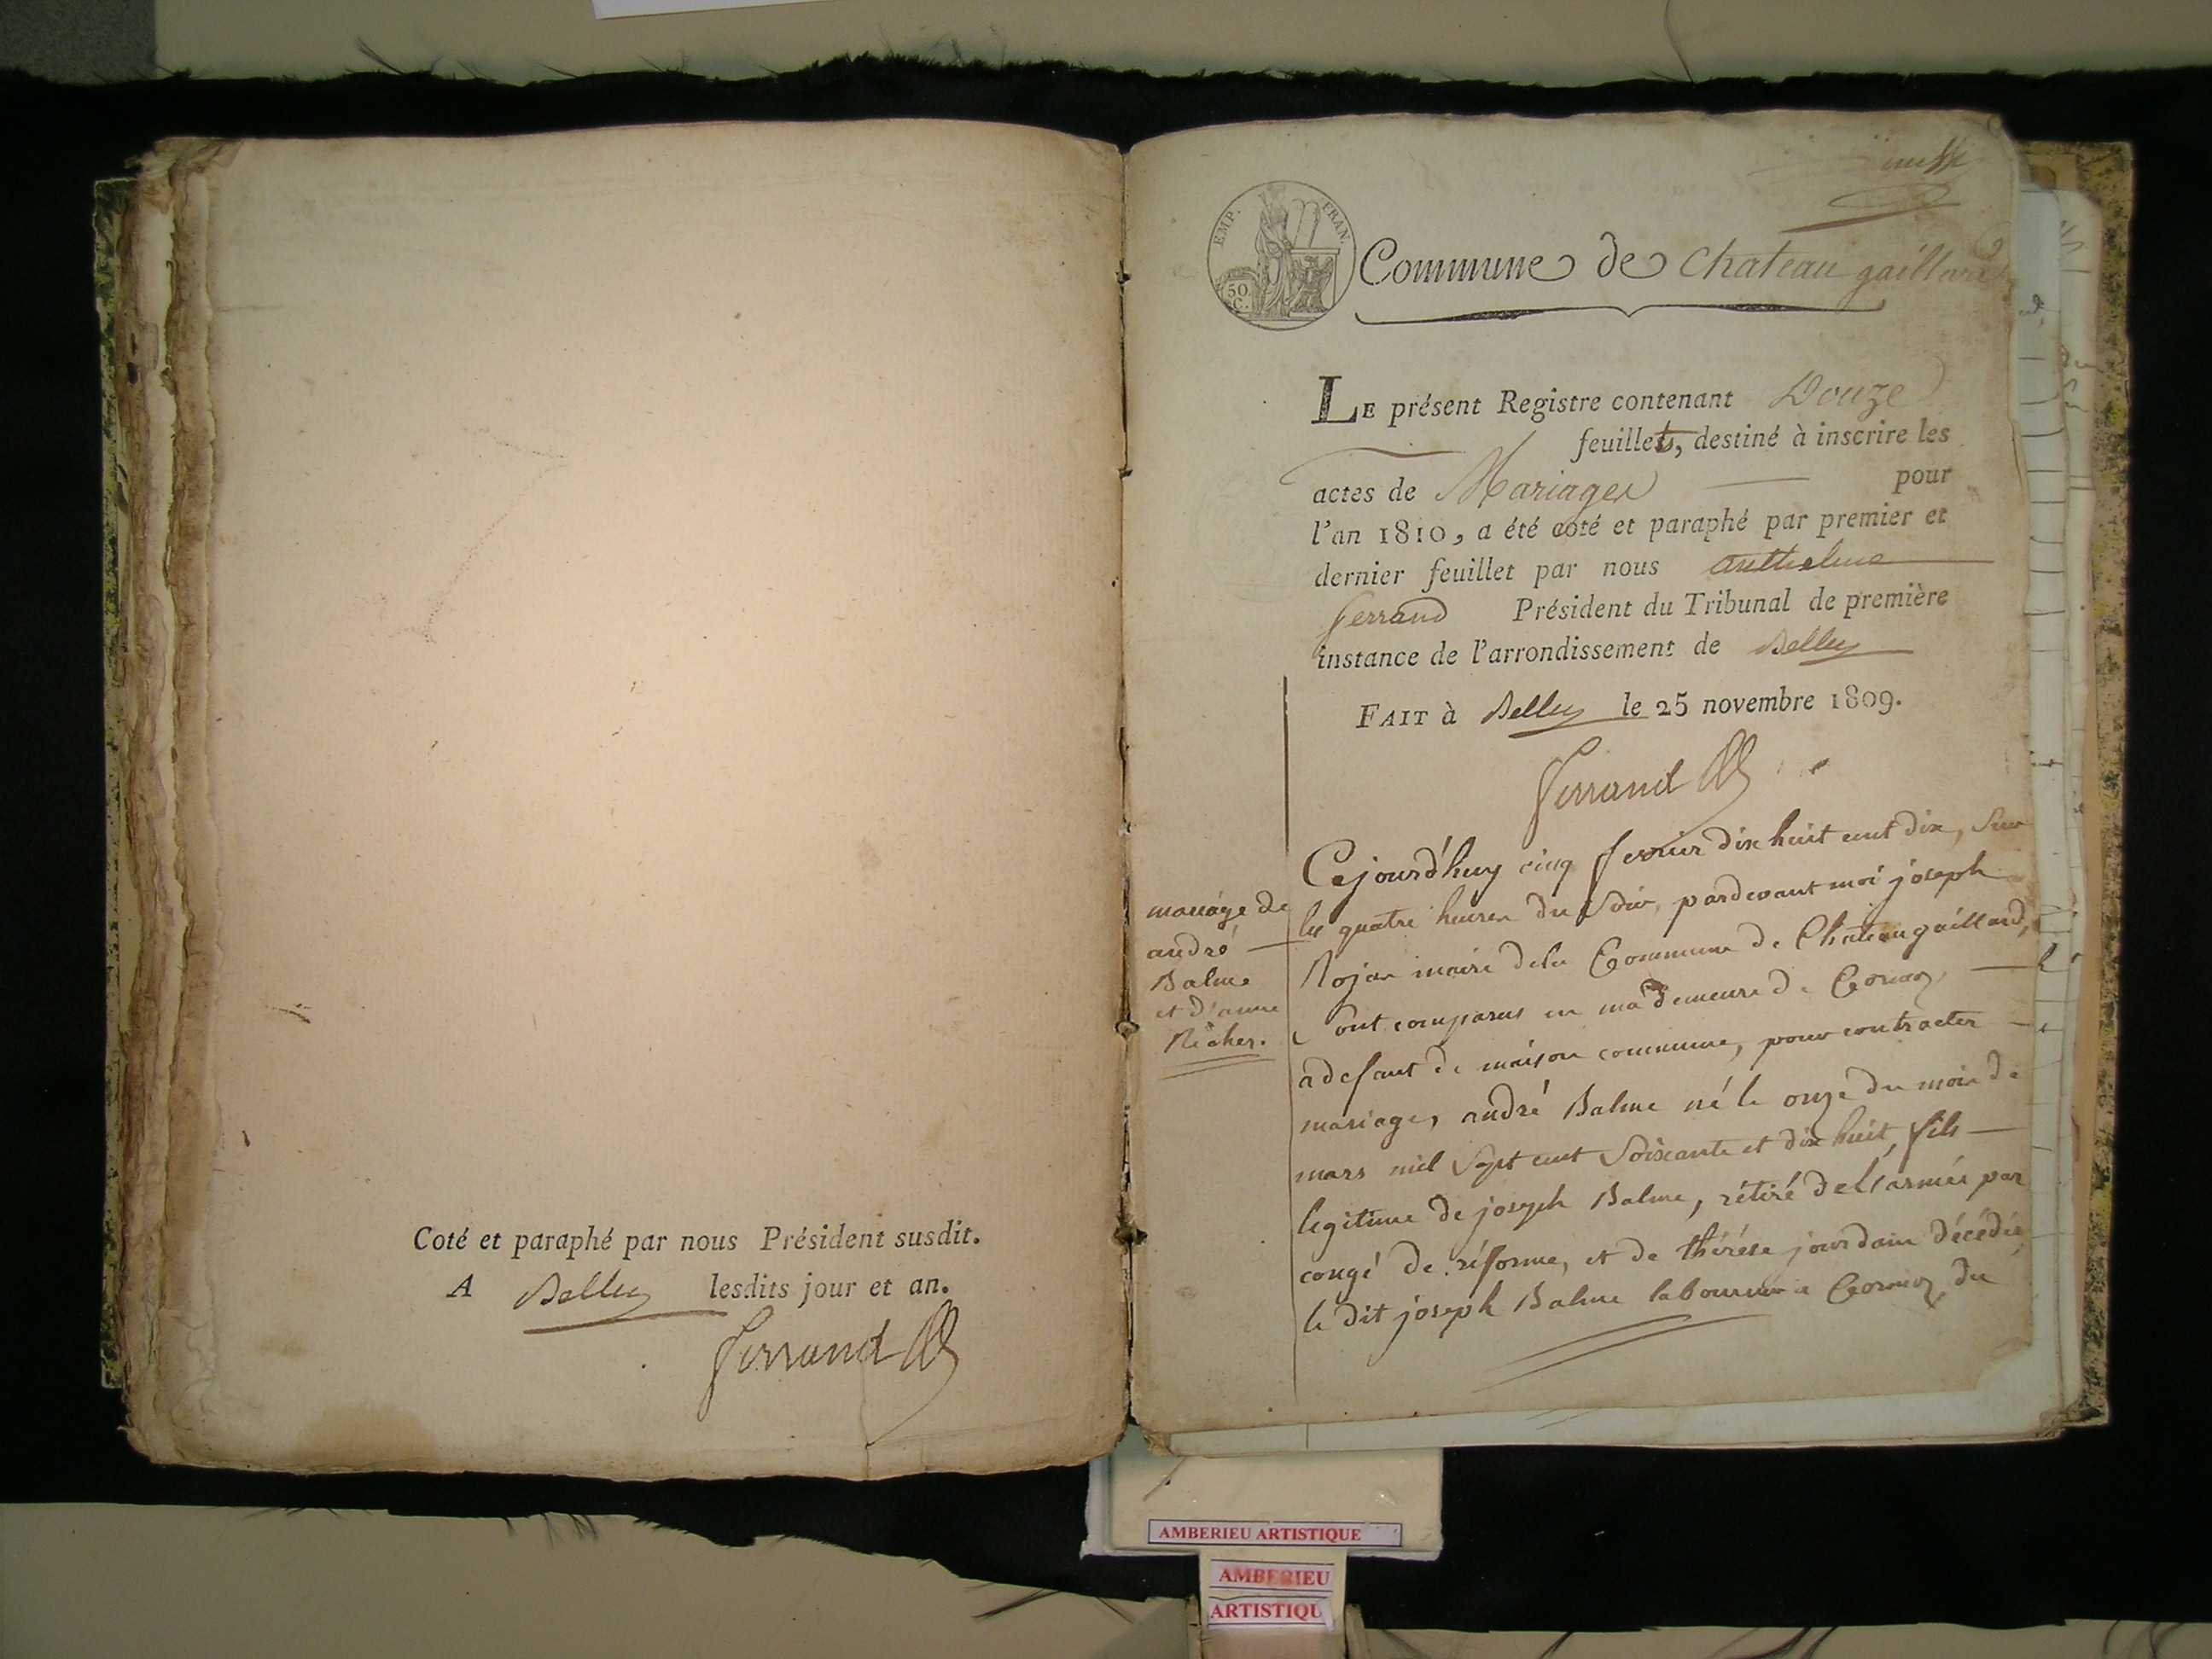 Coté et paraphé par nous Président susdit.
A Belley lesdits jour et an.
Ferrand
EMP. FRAN.
50 C.
Commune de Chateau gaillard
LE présent Registre contenant Douze
feuillets, destiné à inscrire les
actes de Mariages pour
l'an 1810, a été coté et paraphé par premier et
dernier feuillet par nous anthelme
ferrand Président du Tribunal de première
instance de l'arrondissement de Belley
FAIT à Belley le 25 novembre 1809.
Ferrand
mariage de
andré
Balme
et d'anne
Cejourd'huy cinq fevrier dix huit cent dix, Sur
les quatre heures du Soir, pardevant moi joseph
maire dela Commune de Chateaugaillard,
Sont comparus en ma demeure de Cormoz,
a defaut de maison commune, pour contracter
mariage, andré Balme né le onze du mois de
mars mil Sept cent Soixante et dix huit, fils
legitime de joseph Balme, rétiré del'armée par
congé de réforme, et de thérése jourdain décédée
le dit joseph Balme laboureur a Cormoz, du
AMBERIEU ARTISTIQUE
AMBERIEU
ARTISTIQU